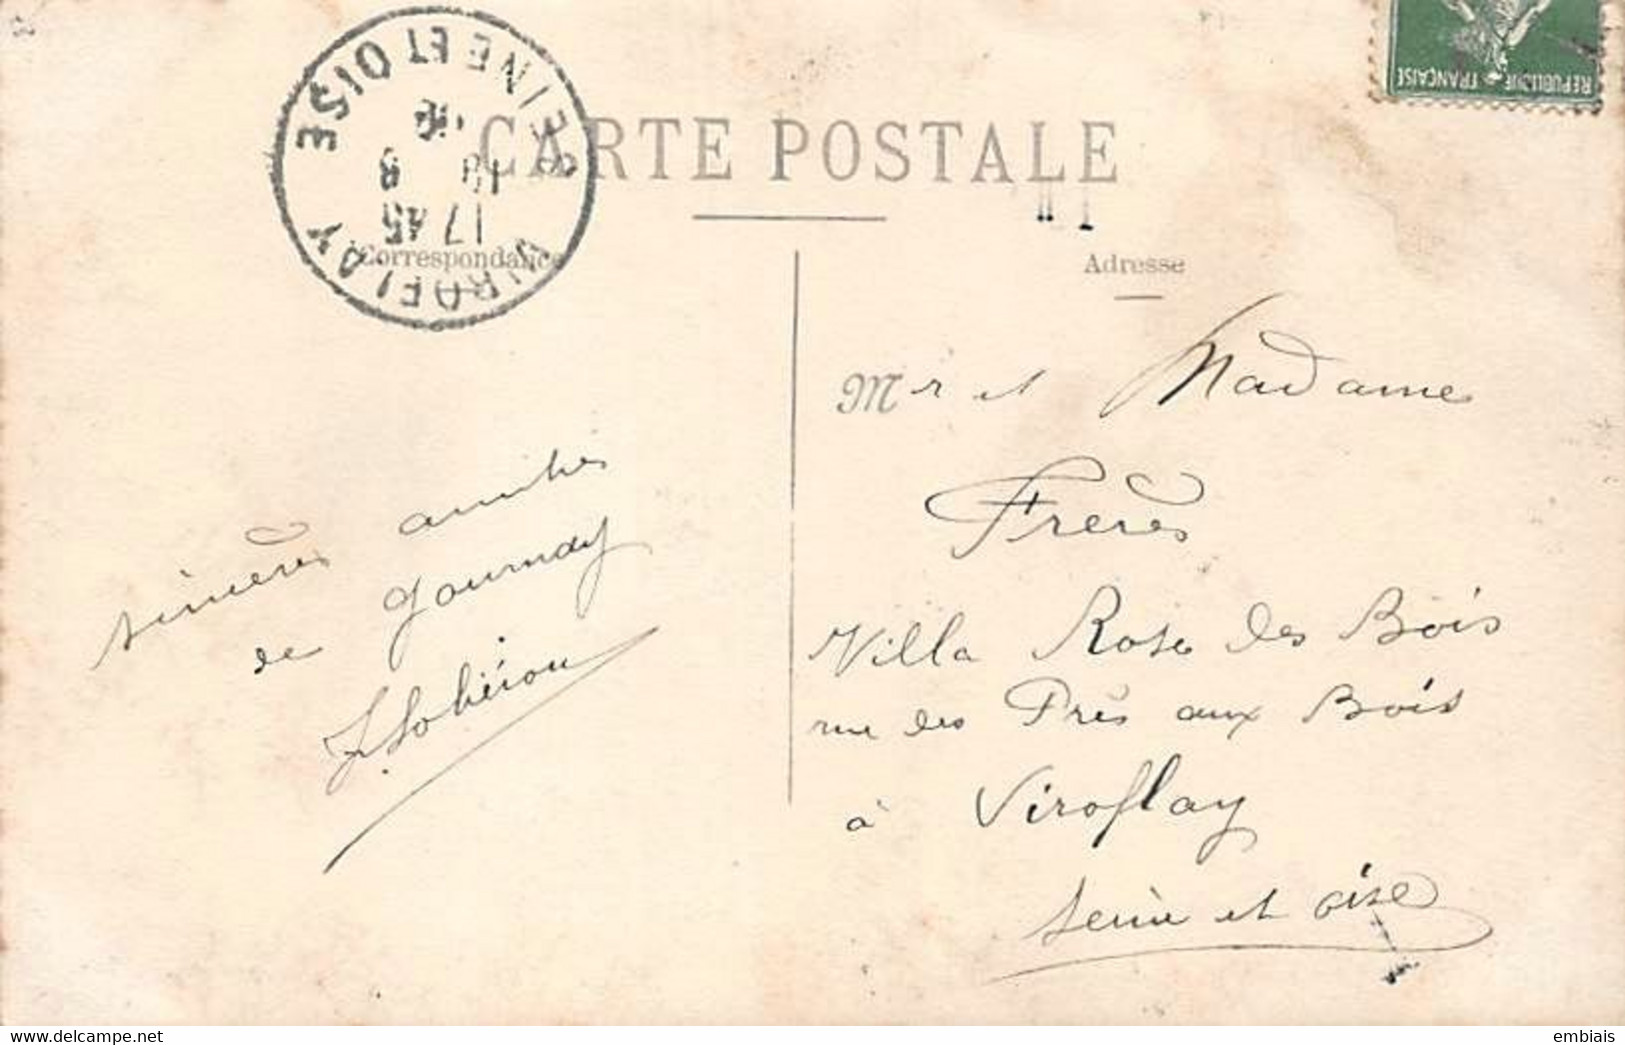 CARTE POSTALE
Correspondance
Adresse
RÉPUBLIQUE FRANÇAISE
VIROFLAY
SEINE ET OISE
17 45
18 8
Mr et Madame
Frères
Villa Rose des Bois
rue des Près aux Bois
à Viroflay
Seine et oise
sincères amitiés
de Gournay
delcampe.net
embiais